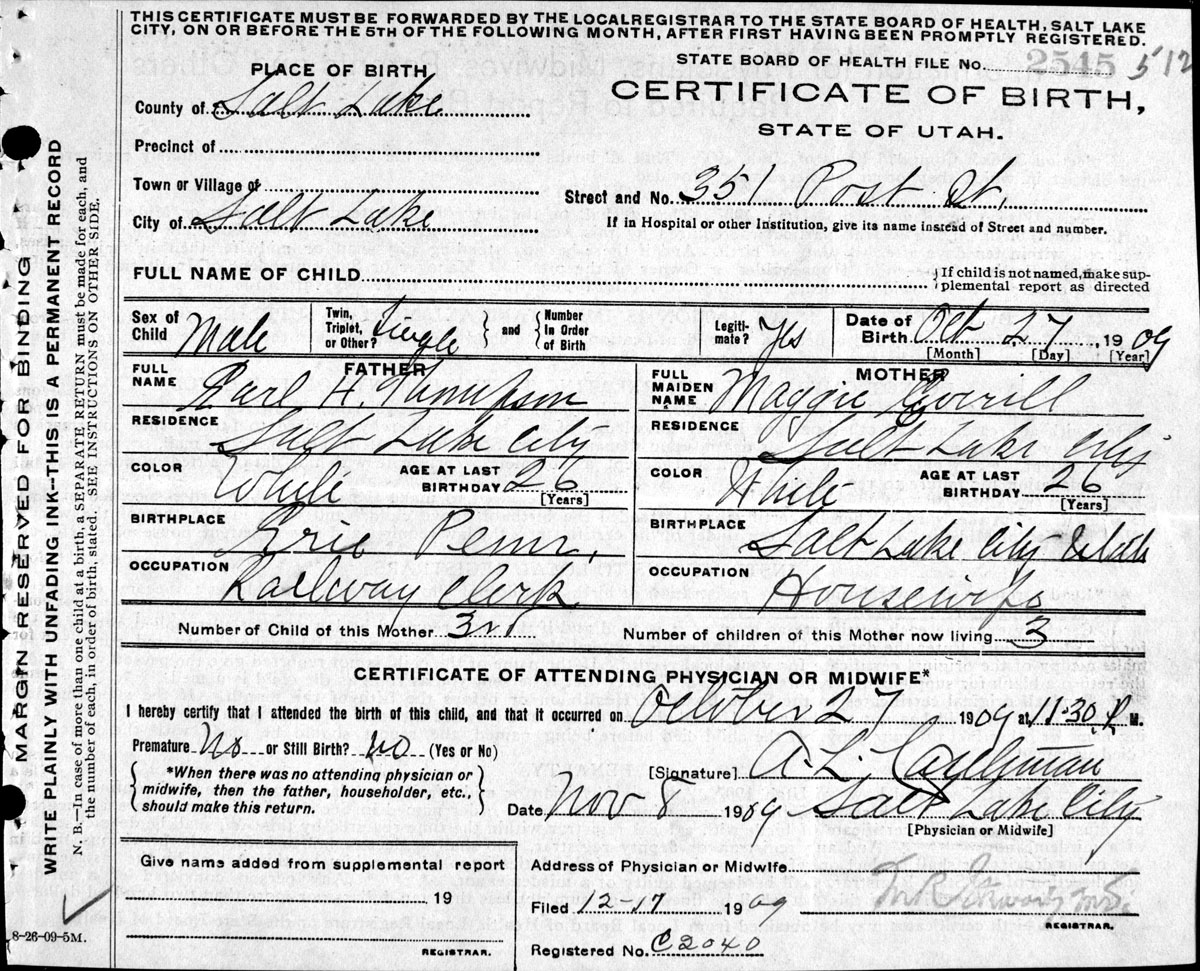 THIS CERTIFICATE MUST BE FORWARDED BY THE LOCALREGISTRAR TO THE STATE BOARD OF HEALTH, SALT LAKE
CITY, ON OR BEFORE THE 5TH OF THE FOLLOWING MONTH, AFTER FIRST HAVING BEEN PROMPTLY REGISTERED.
STATE BOARD OF HEALTH FILE No. 2545 512
CERTIFICATE OF BIRTH,
STATE OF UTAH.
PLACE OF BIRTH
County of Salt Lake
Precinct of
Town or Village of
City of Salt Lake
Street and No. 351 Post St.
If in Hospital or other Institution, give its name instead of Street and number.
FULL NAME OF CHILD
{If child is not named, make sup-
plemental report as directed
Sex of Child Male
Twin, Triplet, or Other? Single } and { Number In Order of Birth
Legiti-mate? Yes
Date of Birth Oct 27, 1909
[Month] [Day] [Year]
FATHER
FULL NAME Earl H. Thompson
RESIDENCE Salt Lake City
COLOR White AGE AT LAST BIRTHDAY 26
[Years]
BIRTHPLACE Erie Penn.
OCCUPATION Railway Clerk
MOTHER
FULL MAIDEN NAME Maggie
RESIDENCE Salt Lake City
COLOR White AGE AT LAST BIRTHDAY 26
[Years]
BIRTHPLACE Salt Lake City Utah
OCCUPATION Housewife
Number of Child of this Mother 3rd Number of children of this Mother now living 3
CERTIFICATE OF ATTENDING PHYSICIAN OR MIDWIFE*
I hereby certify that I attended the birth of this child, and that it occurred on October 27 1909 at 11:30 P M.
Premature No or Still Birth? no (Yes or No)
{ *When there was no attending physician or
midwife, then the father, householder, etc.,
should make this return. }
[Signature] A. L. Castleman
Date Nov 8 1909 Salt Lake City
[Physician or Midwife]
Give name added from supplemental report
19
REGISTRAR.
Address of Physician or Midwife
Filed 12-17 1909
REGISTRAR.
Registered No. C2040
8-26-09-5M.
MARGIN RESERVED FOR BINDING
WRITE PLAINLY WITH UNFADING INK--THIS IS A PERMANENT RECORD
N. B.--In case of more than one child at a birth, a SEPARATE RETURN must be made for each, and
the number of each, in order of birth, stated. SEE INSTRUCTIONS ON OTHER SIDE.